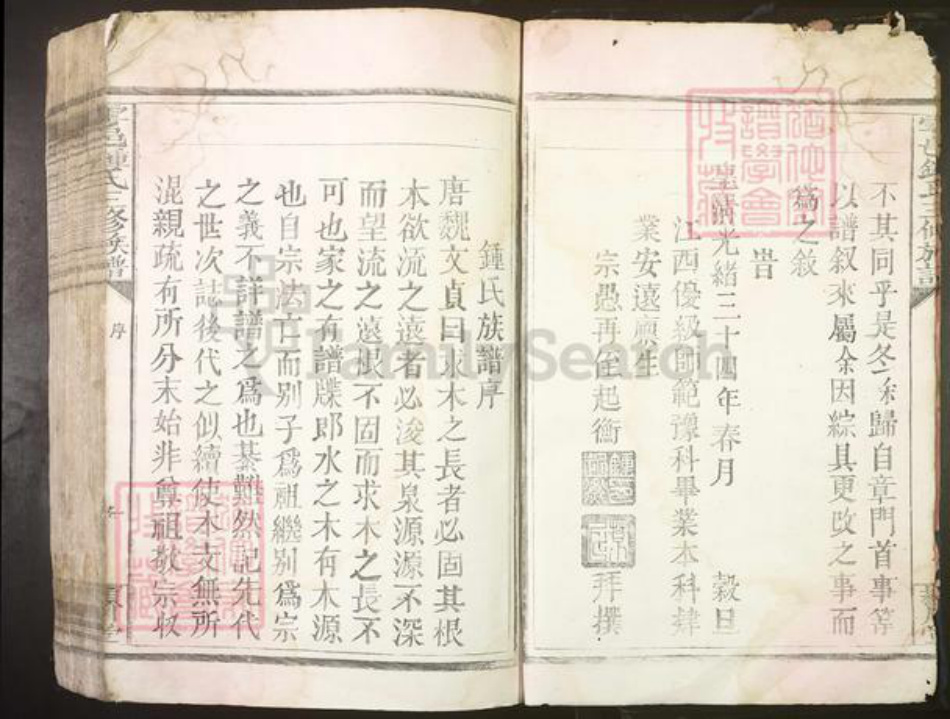 不其同乎是冬余歸自章門首事等
以譜叙來屬余因綜具更改之事而
爲之敘
旹
皇清光緒三十四年春月 穀旦
江西優級師範豫科畢業本科肄
業安遠廩生
宗愚再侄起衡 拜撰
鍾氏族譜序
唐魏文貞曰求木之長者必固其根
本欲流之遠者必浚其泉源源不深
而望流之遠根不固而求木之長不
可也家之有譜牒卽水之木有本源
也自宗法亡而别子爲祖繼别爲宗
之義不詳譜之爲也綦難然記先代
之世次誌後代之似續使本支無所
混親疏有所分末始非尊祖敬宗収
邑鍾氏三修族譜
序
FamilySearch